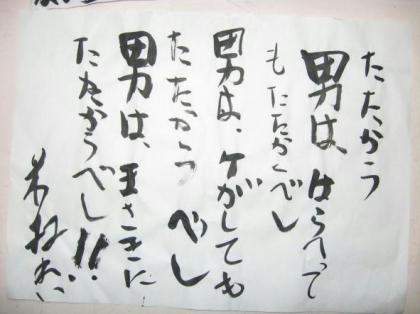 たたかう
男は、はらへって
もたたかうべし
男は、ケがしても
たたかう べし
男は、王さきに
たたかうべし!!